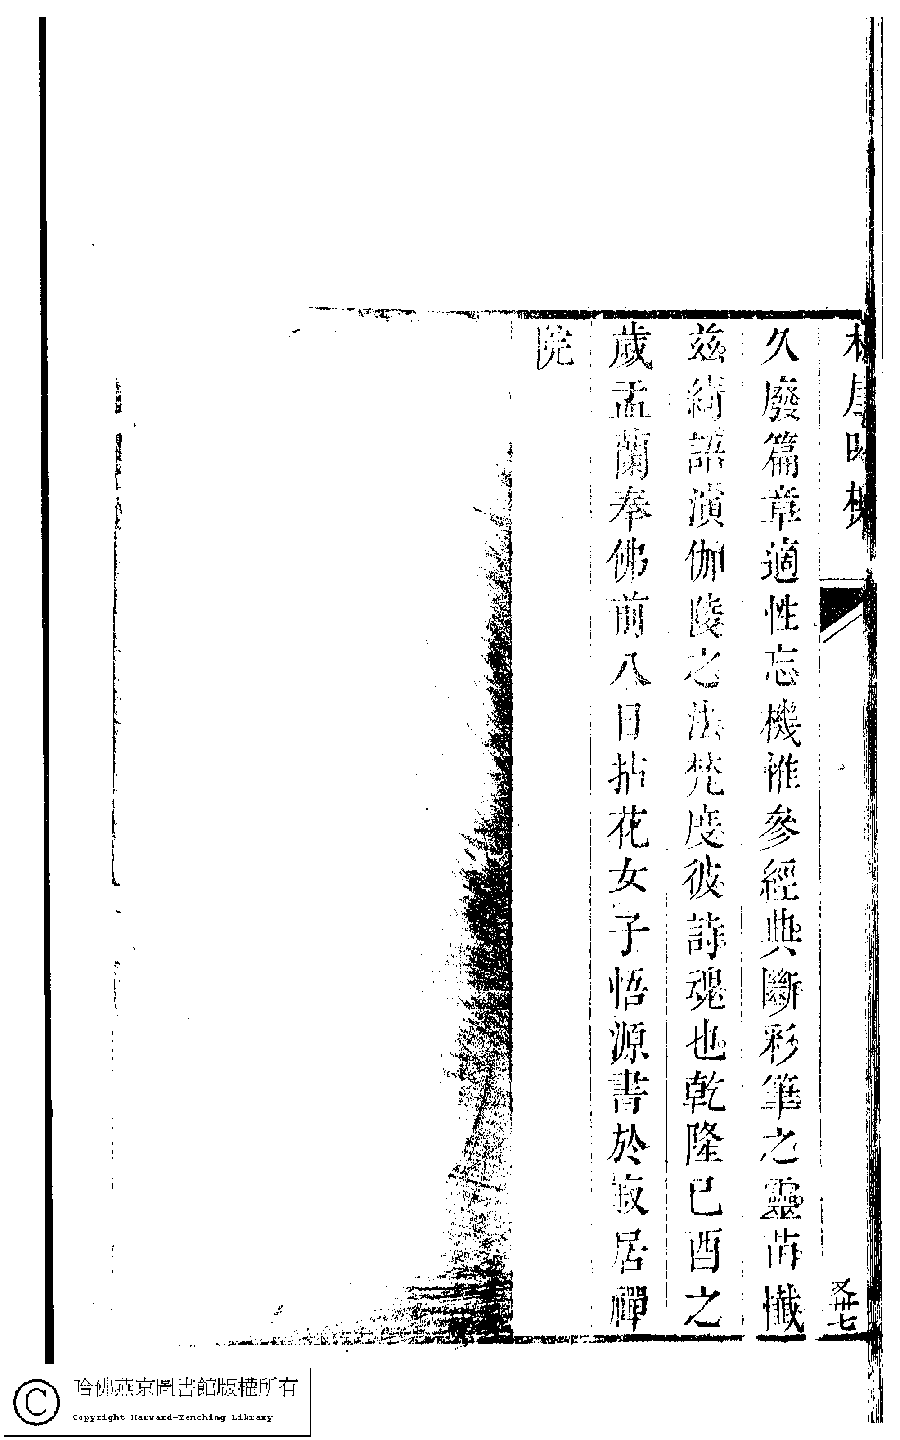 久廢篇章適性忘機惟參經典斷彩筆之靈苗懺
茲綺語演伽陵之法梵度彼詩魂也乾隆己酉之
歲盂蘭奉佛前八日拈花女子悟源書於寂居禪
院
又卅七
哈佛燕京圖書館版權所有
Copyright Harvard-Yenching Library